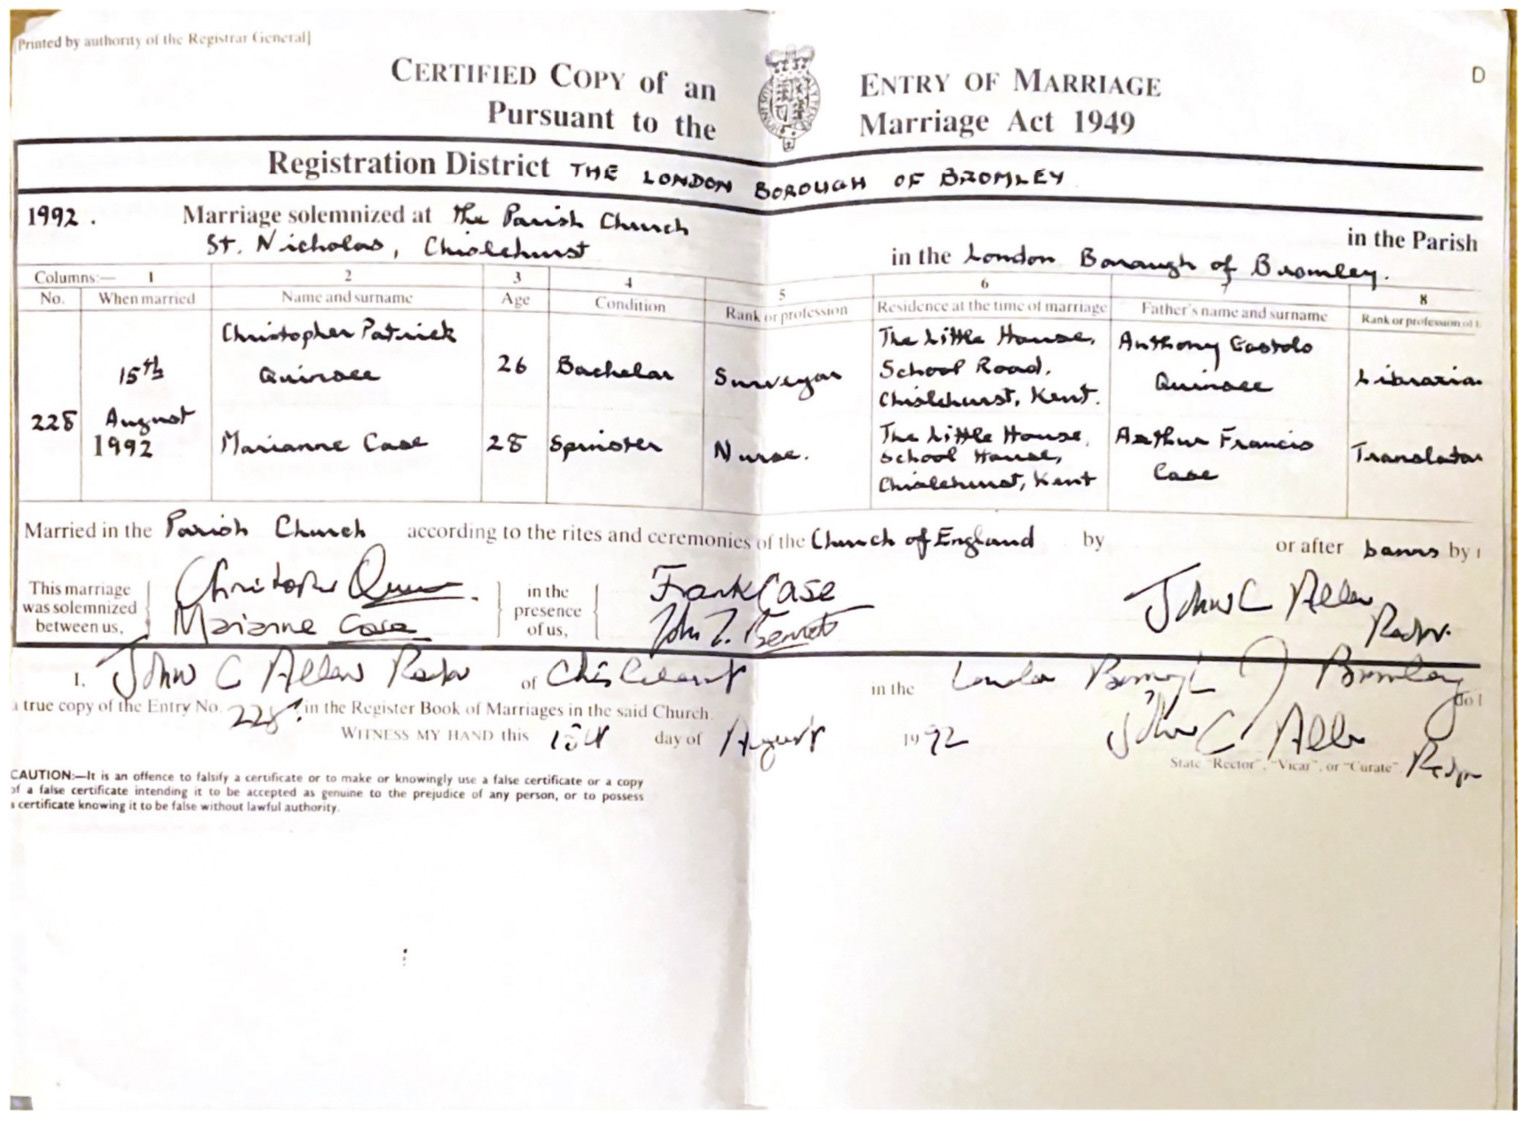 [Printed by authority of the Registrar General]
CERTIFIED COPY of an ENTRY OF MARRIAGE
D
Pursuant to the Marriage Act 1949
Registration District THE LONDON BOROUGH OF BROMLEY
1992. Marriage solemnized at the Parish Church
St. Nicholas, Chislehurst
in the Parish
in the London Borough of Bromley.
Columns:— 1 2 3 4 5 6 8
No. When married Name and surname Age Condition Rank or profession Residence at the time of marriage Father's name and surname Rank or profession of
228
15th
August
1992
Christopher Patrick
26 Bachelor Surveyor
The Little House,
School Road,
Chislehurst, Kent.
Anthony
Libraria
Marianne Case 28 Spinster Nurse.
The Little House,
School House,
Chislehurst, Kent
Arthur Francis
Case
Translator
Married in the Parish Church according to the rites and ceremonies of the Church of England by or after banns by
This marriage
was solemnized
between us,
Christopher
Marianne Case
in the
presence
of us,
Frank Case
John T. Bennett
John C Allen
Rector.
I, John C Allen Rector of Chislehurst in the London Borough of Bromley do
a true copy of the Entry No. 228. in the Register Book of Marriages in the said Church.
WITNESS MY HAND this 15th day of August 1992
John C Allen
Rector
State "Rector", "Vicar", or "Curate".
CAUTION:—It is an offence to falsify a certificate or to make or knowingly use a false certificate or a copy
of a false certificate intending it to be accepted as genuine to the prejudice of any person, or to possess
a certificate knowing it to be false without lawful authority.